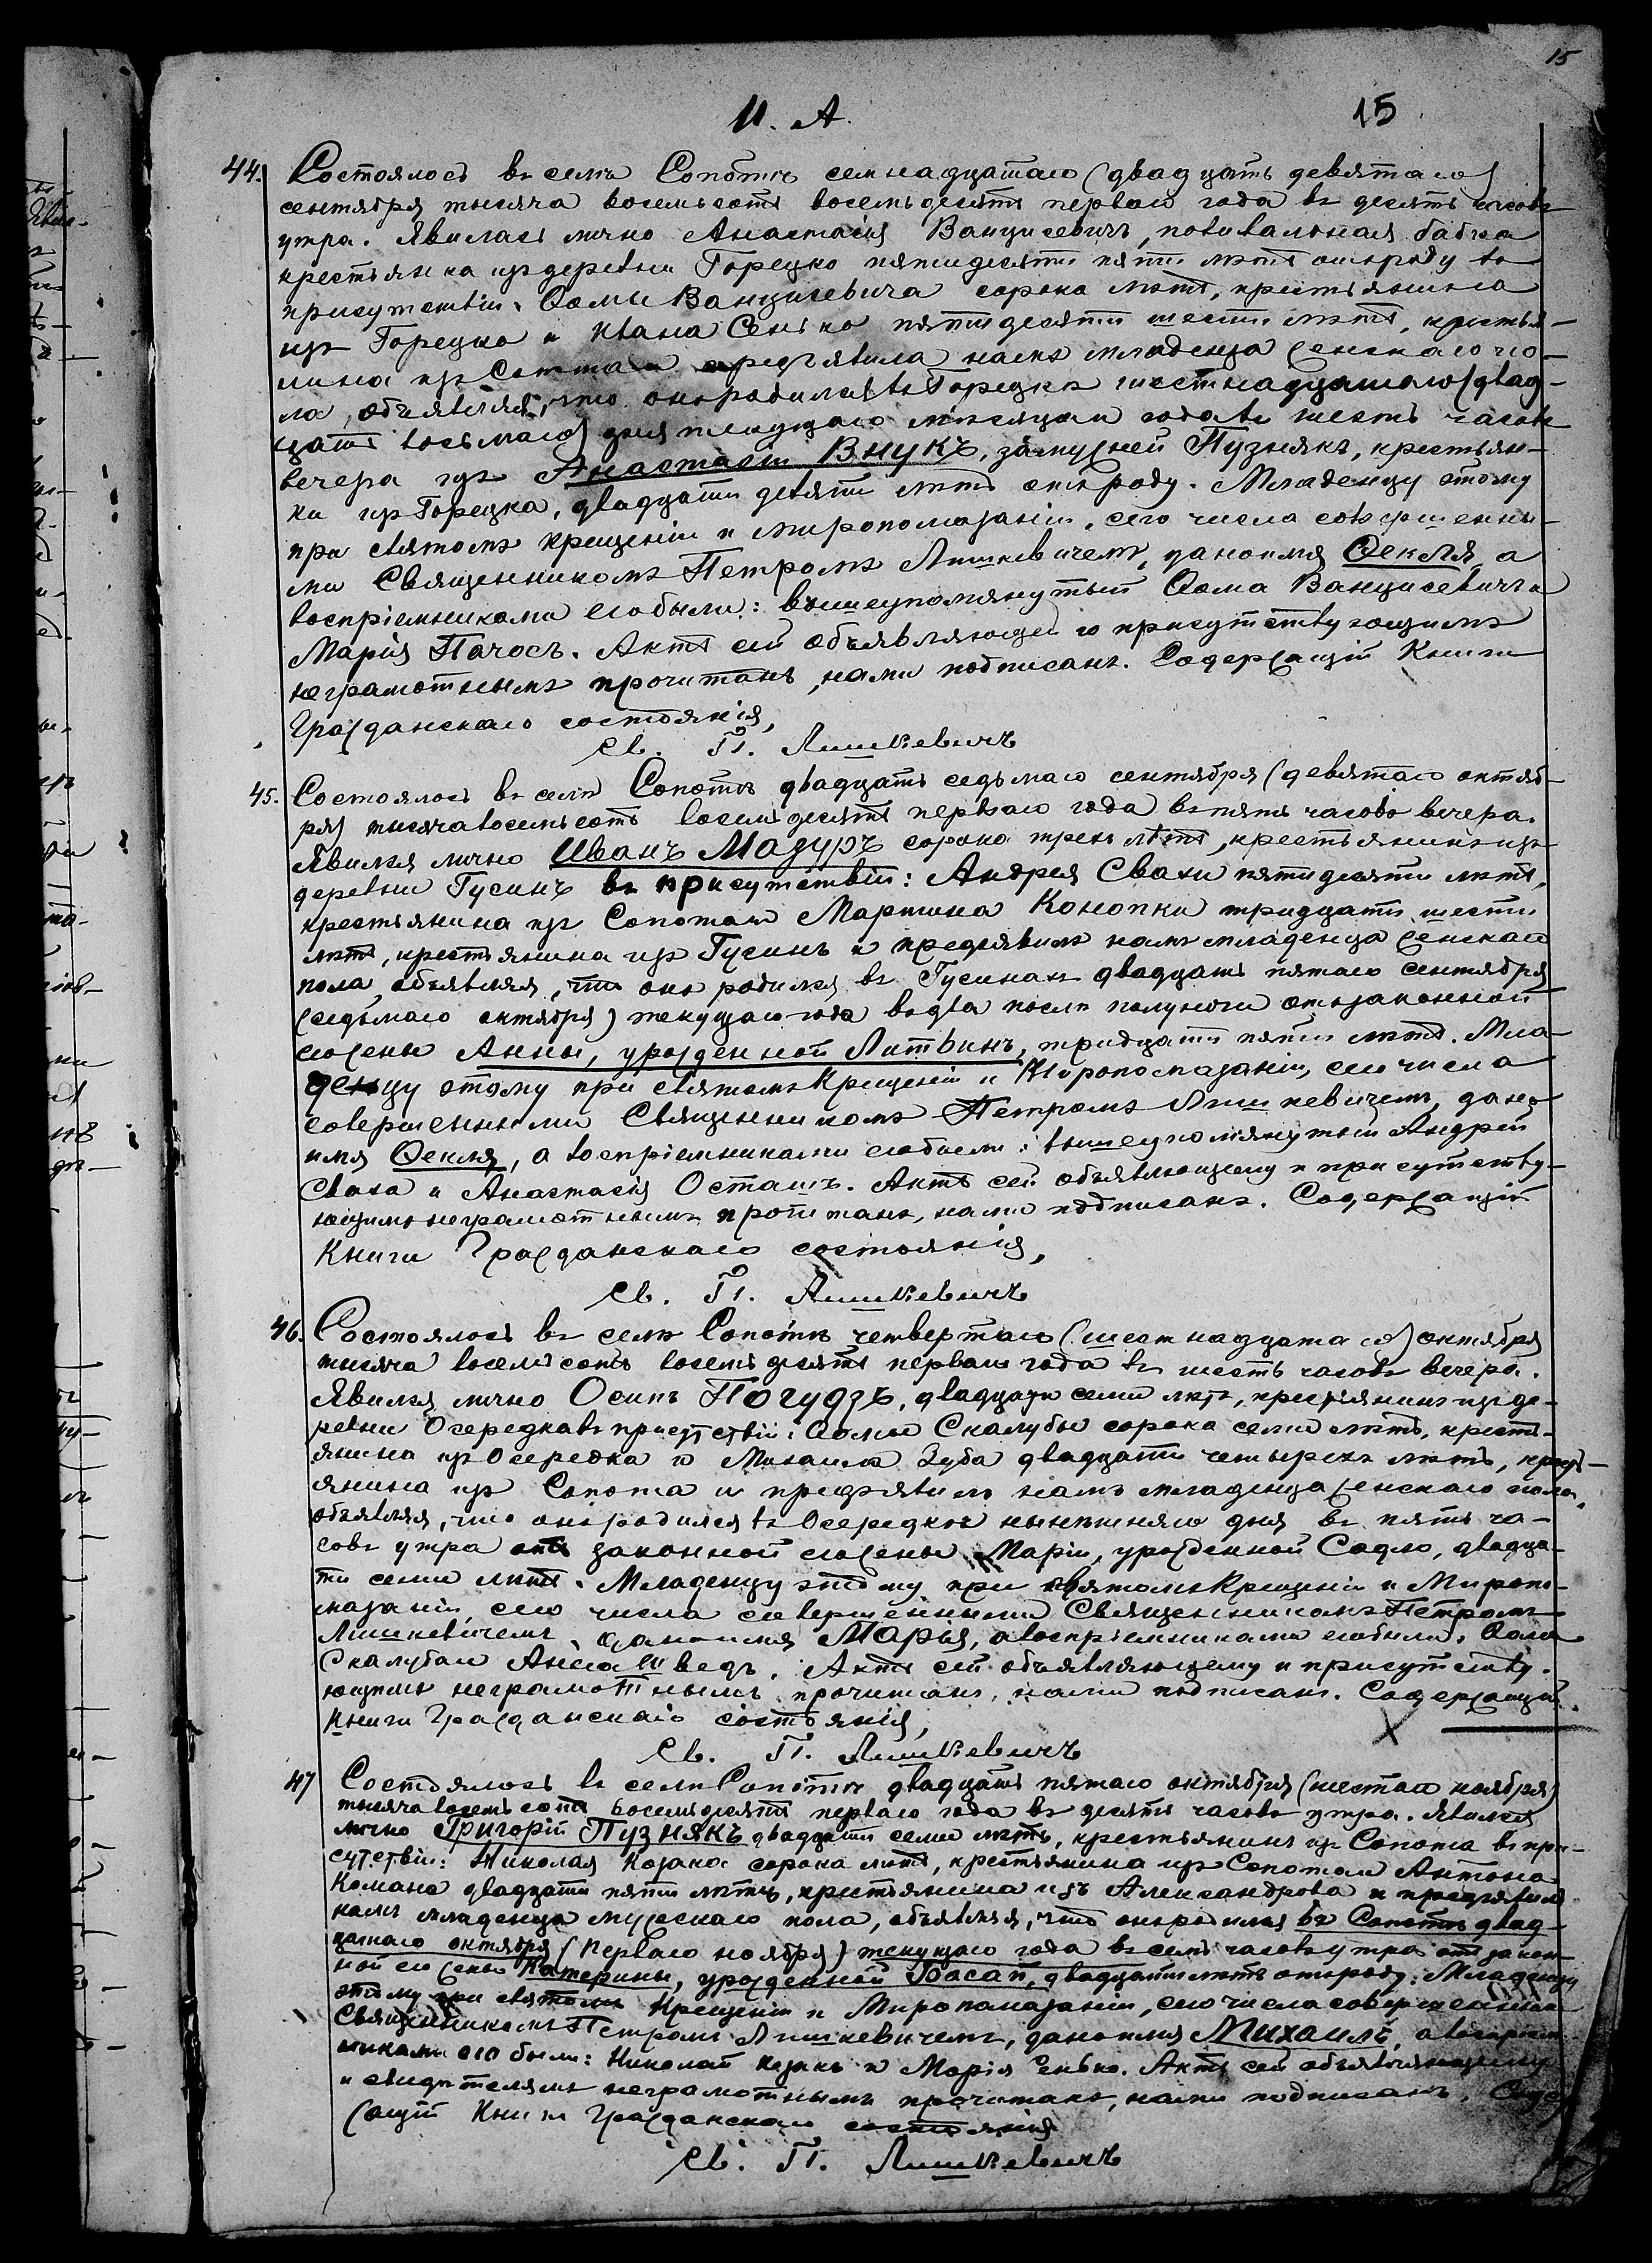 15
11. А.
15
44. Состоялось въ селѣ Сопотѣ семнадцатаго (двадцать девятаго)
сентября тысяча восемьсотъ восемьдесятъ перваго года въ десять часовъ
утра. Явилась лично Анастасія Ванцисевичъ, повивальная бабка
крестьянка изъ деревни Горецко пятидесяти пяти лѣтъ отъ роду въ
присутствіи: Ѳомы Ванцисевича сорока лѣтъ, крестьянина
изъ Горецка и Ивана Сенько пятидесяти шести лѣтъ, крестья-
нина изъ Сопота и предъявила намъ младенца женскаго по-
ла, объявляя, что онъ родился въ Горецкѣ шестнадцатаго (двад-
цать восьмаго) дня текущаго мѣсяца и года въ шесть часовъ
вечера изъ Анастасіи Внукъ, замужней Пузнякъ, крестьян-
ки изъ Горецка, двадцати девяти лѣтъ отъ роду. Младенцу этому
при святомъ крещеніи и миропомазаніи, сего числа совершенны-
ми Священникомъ Петромъ Лишкевичемъ, дано имя Ѳекля, а
воспріемниками его были: вышеупомянутый Ѳома Ванцисевичъ и
Марія Пачосъ. Актъ сей объявляющей и присутствующимъ
неграмотнымъ прочитанъ, нами подписанъ. Содержащій Книги
Гражданскаго состоянія,
Св. П. Лишкевичъ
45. Состоялось въ селѣ Сопотѣ двадцать седьмаго сентября (девятаго октяб-
ря) тысяча восемьсотъ восемьдесятъ перваго года въ пять часовъ вечера.
Явился лично Иванъ Мазуръ сорока трехъ лѣтъ, крестьянинъ изъ
деревни Гусинъ въ присутствіи: Андрея Свахи пятидесяти лѣтъ,
крестьянина изъ Сопота и Мартина Конопки тридцати шести
лѣтъ, крестьянина изъ Гусинъ и предъявилъ намъ младенца женскаго
пола, объявляя, что онъ родился въ Гусинахъ двадцать пятаго сентября
(седьмаго октября) текущаго года въ два послѣ полуночи отъ законной
его жены Анны, урожденной Литвинъ, тридцати пяти лѣтъ. Мла-
денцу этому при святомъ Крещеніи и Миропомазаніи, сего числа
совершенными Священникомъ Петромъ Лишкевичемъ, дано
имя Ѳекля, а воспріемниками его были: вышеупомянутый Андрей
Сваха и Анастасія Осташъ. Актъ сей объявляющему и присутству-
ющимъ неграмотнымъ прочитанъ, нами подписанъ. Содержащій
Книги Гражданскаго состоянія,
Св. П. Лишкевичъ
46. Состоялось въ селѣ Сопотѣ четвертаго (шестнадцатаго) октября
тысяча восемьсотъ восемьдесятъ перваго года въ шесть часовъ вечера.
Явился лично Осипъ Погудзъ, двадцати семи лѣтъ, крестьянинъ изъ де-
ревни Осередка въ присутствіи: Ѳомы Скалубы сорока семи лѣтъ, кресть-
янина изъ Осередка и Михаила Зуба двадцати четырехъ лѣтъ, кресть-
янина изъ Сопота и предъявилъ намъ младенца женскаго пола,
объявляя, что онъ родился въ Осередкѣ нынѣшняго дня въ пять ча-
совъ утра отъ законной его жены Маріи, урожденной Садло, двадца-
ти семи лѣтъ. Младенцу этому при святомъ Крещеніи и Миропо-
мазаніи, сего числа совершенными Священникомъ Петромъ
Лишкевичемъ, дано имя Марья, а воспріемниками его были: Ѳома
Скалуба и Анна Шведъ. Актъ сей объявляющему и присутству-
ющимъ неграмотнымъ прочитанъ, нами подписанъ. Содержащій
Книги Гражданскаго состоянія,
Св. П. Лишкевичъ
47 Состоялось въ селѣ Сопотѣ двадцать пятаго октября (шестаго ноября)
тысяча восемьсотъ восемьдесятъ перваго года въ десять часовъ утра. Явился
лично Григорій Пузнякъ двадцати семи лѣтъ, крестьянинъ изъ Сопота въ при-
сутствіи: Николая Козака сорока лѣтъ, крестьянина изъ Сопота и Антона
Комана двадцати пяти лѣтъ, крестьянина изъ Александрова и предъявилъ
намъ младенца мужескаго пола, объявляя, что онъ родился въ Сопотѣ двад-
цатаго октября (перваго ноября) текущаго года въ семь часовъ утра отъ закон-
ной его жены Катерины, урожденной Басай, двадцати лѣтъ отъ роду. Младенцу
этому при святомъ Крещеніи и Миропомазаніи, сего числа совершенными
Священникомъ Петромъ Лишкевичемъ, дано имя Михаилъ, а воспріем-
никами его были: Николай Козакъ и Марія Сенько. Актъ сей объявляющему
и свидѣтелямъ неграмотнымъ прочитанъ, нами подписанъ. Содер-
жащій Книги Гражданскаго состоянія
Св. П. Лишкевичъ